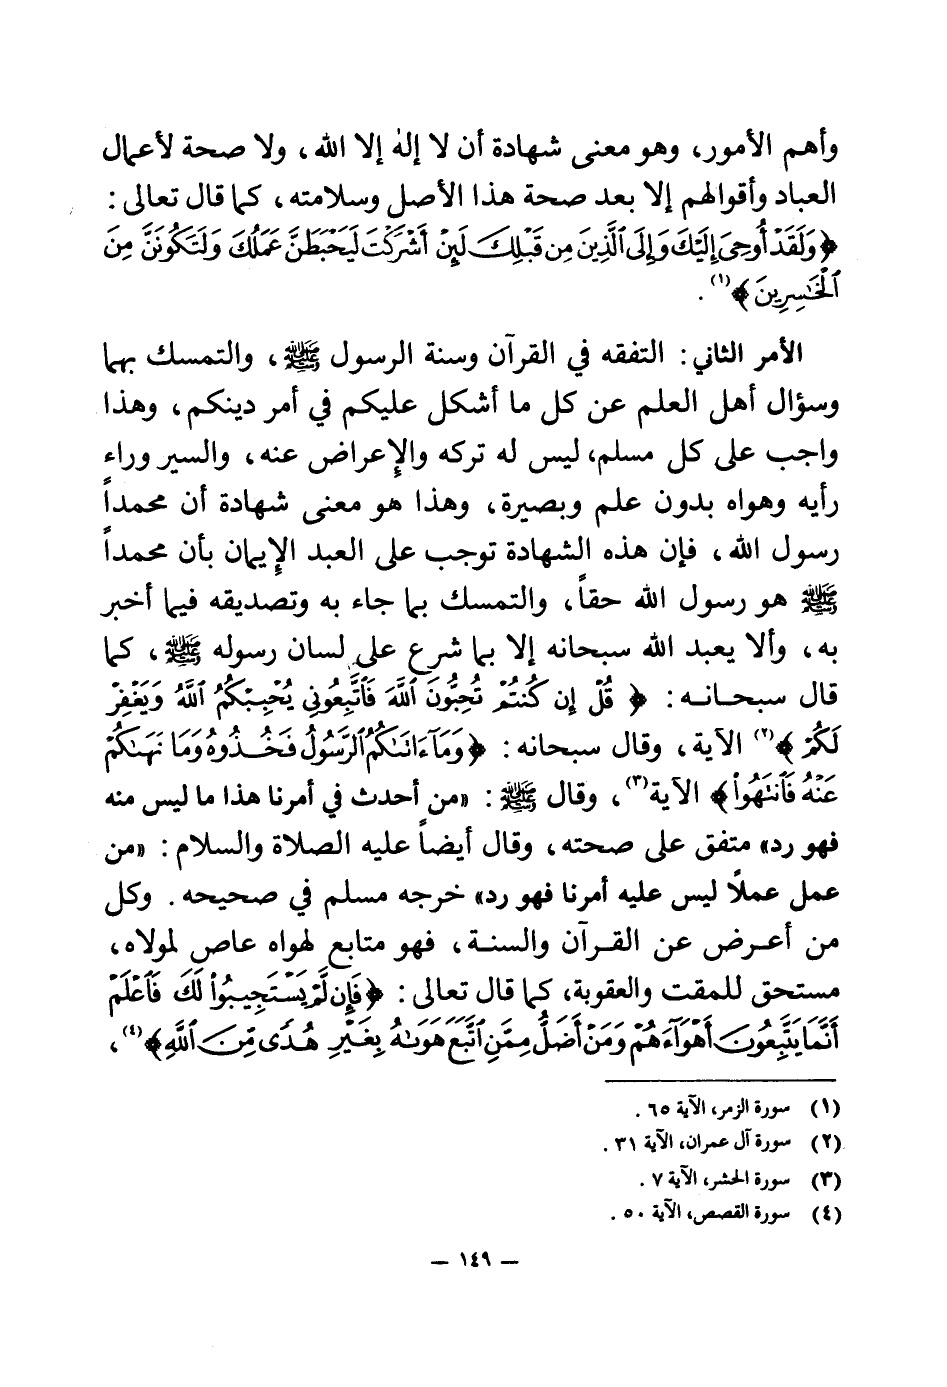 وأهم الأمور، وهو معنى شهادة أن لا إله إلا الله، ولا صحة لأعمال
العباد وأقوالهم إلا بعد صحة هذا الأصل وسلامته، كما قال تعالى:
﴿وَلَقَدْ أُوحِيَ إِلَيْكَ وَإِلَى الَّذِينَ مِن قَبْلِكَ لَئِنْ أَشْرَكْتَ لَيَحْبَطَنَّ عَمَلُكَ وَلَتَكُونَنَّ مِنَ
الْخَاسِرِينَ﴾(١).
الأمر الثاني: التفقه في القرآن وسنة الرسول ﷺ، والتمسك بهما
وسؤال أهل العلم عن كل ما أشكل عليكم في أمر دينكم، وهذا
واجب على كل مسلم، ليس له تركه والإعراض عنه، والسير وراء
رأيه وهواه بدون علم وبصيرة، وهذا هو معنى شهادة أن محمداً
رسول الله، فإن هذه الشهادة توجب على العبد الإيمان بأن محمداً
ﷺ هو رسول الله حقاً، والتمسك بما جاء به وتصديقه فيما أخبر
به، وألا يعبد الله سبحانه إلا بما شرع على لسان رسوله ﷺ، كما
قال سبحانه: ﴿قُلْ إِن كُنتُمْ تُحِبُّونَ اللَّهَ فَاتَّبِعُونِي يُحْبِبْكُمُ اللَّهُ وَيَغْفِرْ
لَكُمْ﴾(٢) الآية، وقال سبحانه: ﴿وَمَا آتَاكُمُ الرَّسُولُ فَخُذُوهُ وَمَا نَهَاكُمْ
عَنْهُ فَانتَهُوا﴾ الآية(٣)، وقال ﷺ: «من أحدث في أمرنا هذا ما ليس منه
فهو رد» متفق على صحته، وقال أيضاً عليه الصلاة والسلام: «من
عمل عملاً ليس عليه أمرنا فهو رد» خرجه مسلم في صحيحه. وكل
من أعرض عن القرآن والسنة، فهو متابع لهواه عاص لمولاه،
مستحق للمقت والعقوبة، كما قال تعالى: ﴿فَإِن لَّمْ يَسْتَجِيبُوا لَكَ فَاعْلَمْ
أَنَّمَا يَتَّبِعُونَ أَهْوَاءَهُمْ وَمَنْ أَضَلُّ مِمَّنِ اتَّبَعَ هَوَاهُ بِغَيْرِ هُدًى مِّنَ اللَّهِ﴾(٤)،
(١) سورة الزمر، الآية ٦٥.
(٢) سورة آل عمران، الآية ٣١.
(٣) سورة الحشر، الآية ٧.
(٤) سورة القصص، الآية ٥٠.
— ١٤٩ —